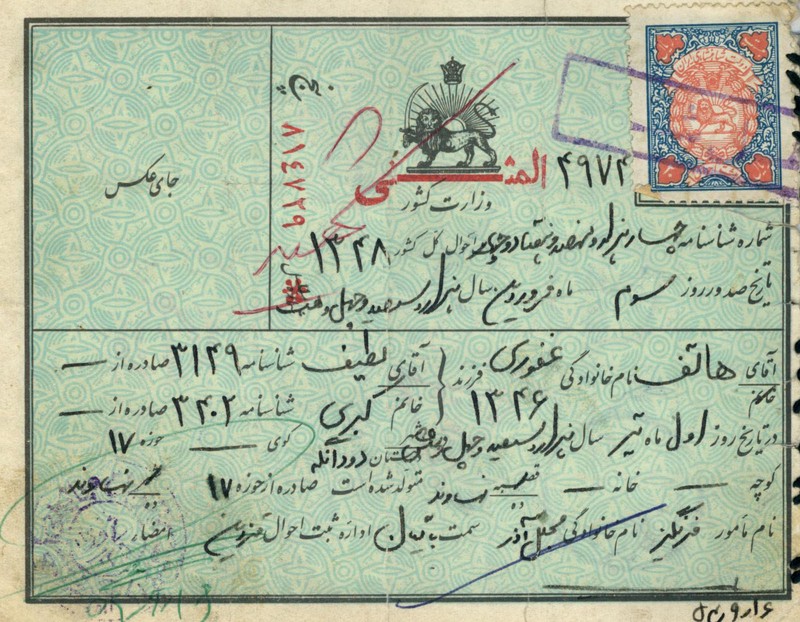 جای عکس
۶۱۸۶۱۷
۴۹۷۴
المثنی
وزارت کشور
شماره شناسنامه چهار هزار و نهصد و هفتاد و چهار احوال کل کشور
۱۳۴۸
تاریخ صدور روز سوم ماه فروردین سال هزار و سیصد و چهل و هشت
آقای هاتف نام خانوادگی غفوری فرزند آقای لطیف شناسنامه ۳۱۴۹ صادره از —
خانم
۱۳۴۶ خانم کبری شناسنامه ۳۴۰۲ صادره از —
در تاریخ روز اول ماه تیر سال هزار و سیصد و چهل و شش کوی — حوزه ۱۷
کوچه — خانه — قصبه نهاوند متولد شده است صادره از حوزه ۱۷ شهر نهاوند
ده
نام مأمور فرنگیز نام خانوادگی مجلل آذر سمت اداره ثبت احوال قزوین امضاء